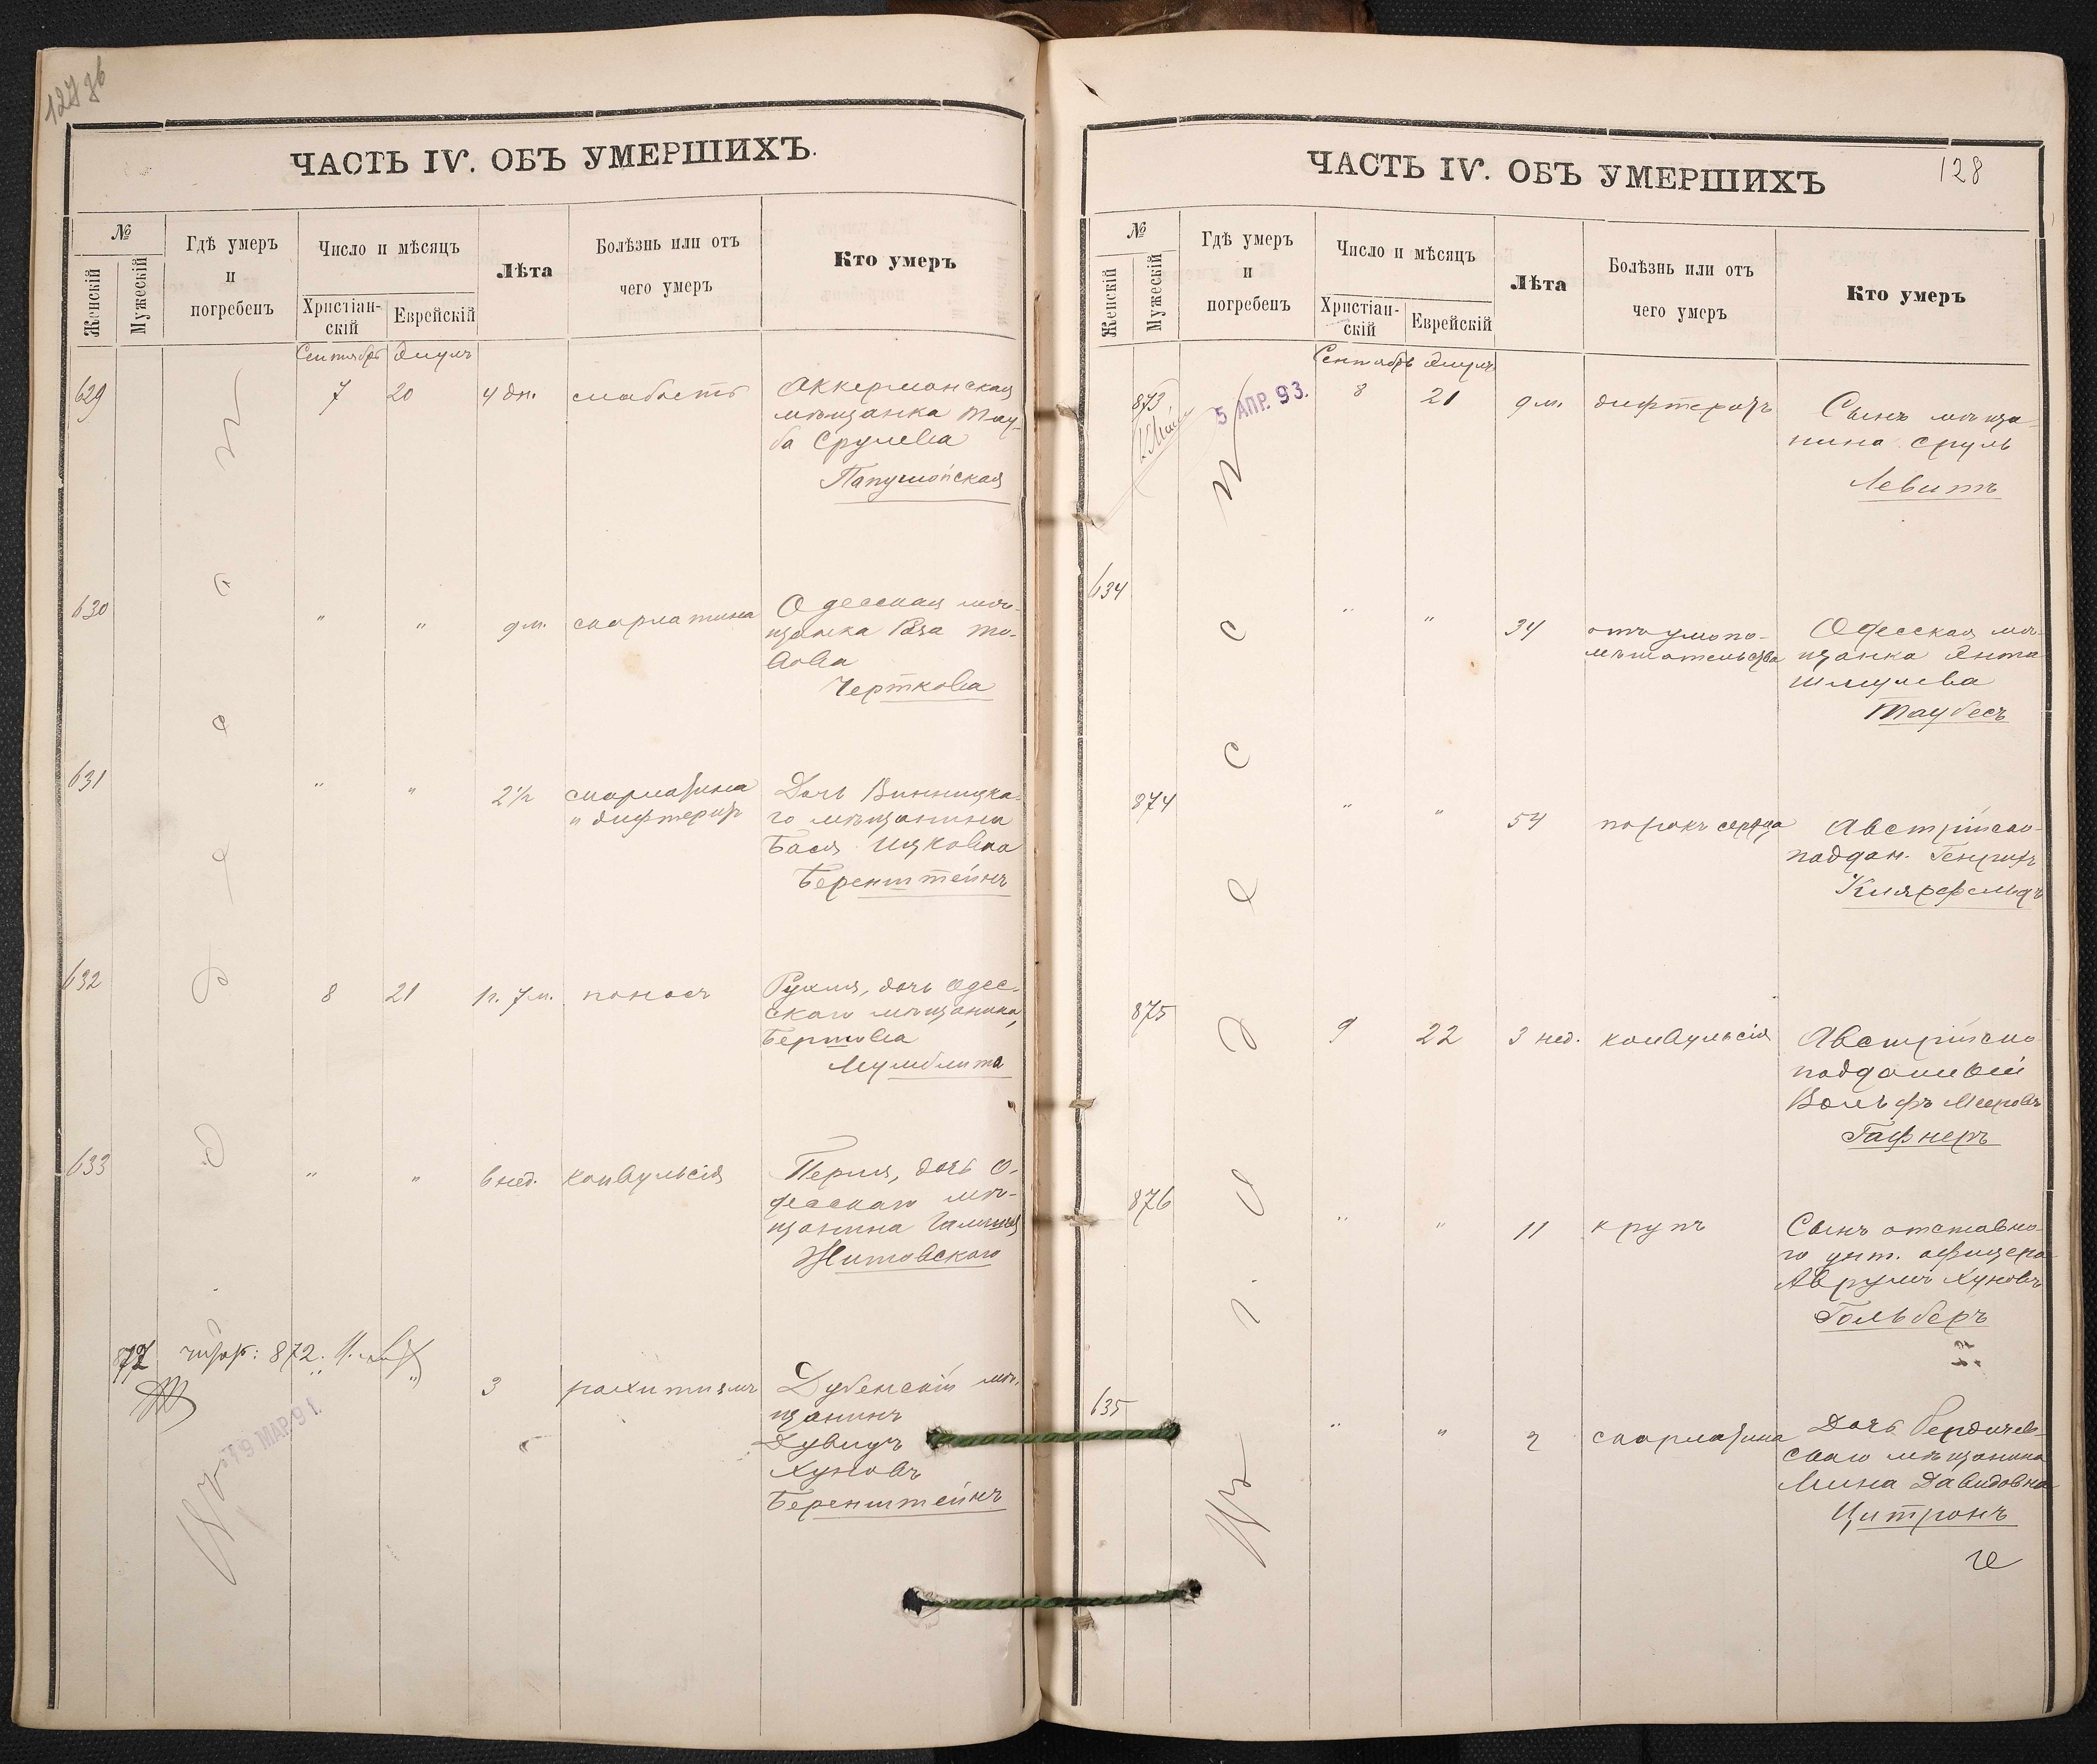 127 зв
ЧАСТЬ IV. ОБЪ УМЕРШИХЪ.
№
Женскій
Мужескій
Гдѣ умеръ
и
погребенъ
Число и мѣсяцъ
Христіан-
скій
Еврейскій
Лѣта
Болѣзнь или отъ
чего умеръ
Кто умеръ
Сентябрь Элулъ
629 7 20 4 дн. слабость Аккерманская
мѣщанка Тау-
ба Срулева
Папушойская
630 " " 9 м. скарлатина Одесская мѣ-
щанка
Черткова
631 " " 2½ скарлатина Дочь Винницка-
и дифтеритъ го мѣщанина
Бася Ицковна
Беренштейнъ
632 8 21 1 г. 7 м. поносъ Рухля, дочь Одес-
скаго мѣщанина,
633 " " 6 нед. конвульсія Перля, дочь О-
десскаго мѣ-
щанина
Житовскаго
872 872.
" " 3 рахитизмъ Дубенскій мѣ-
щанинъ
Дувидъ
Хуновъ
Беренштейнъ
19 МАР. 91.
ЧАСТЬ IV. ОБЪ УМЕРШИХЪ
128
№
Женскій
Мужескій
Гдѣ умеръ
и
погребенъ
Число и мѣсяцъ
Христіан-
скій
Еврейскій
Лѣта
Болѣзнь или отъ
чего умеръ
Кто умеръ
Сентябрь Элулъ
873 5 АПР. 93. 8 21 9 м. дифтеритъ Сынъ мѣща-
нина Сруль
Левитъ
634 " " 34 отъ умопо- Одесская мѣ-
мѣшательства щанка Энта
Шмулева
Таубесъ
874 " " 54 порокъ сердца Австрійско-
поддан. Генрихъ
875 9 22 3 нед. конвульсія Австрійско
подданный
Вольфъ Мееровъ
Гафнеръ
876 " " 11 крупъ Сынъ отставно-
го унт. офицера
Аврумъ Хуновъ
Гольберъ
635 " " 2 скарлатина Дочь Бердичев-
скаго мѣщанина
Мина Давидовна
Цитронъ